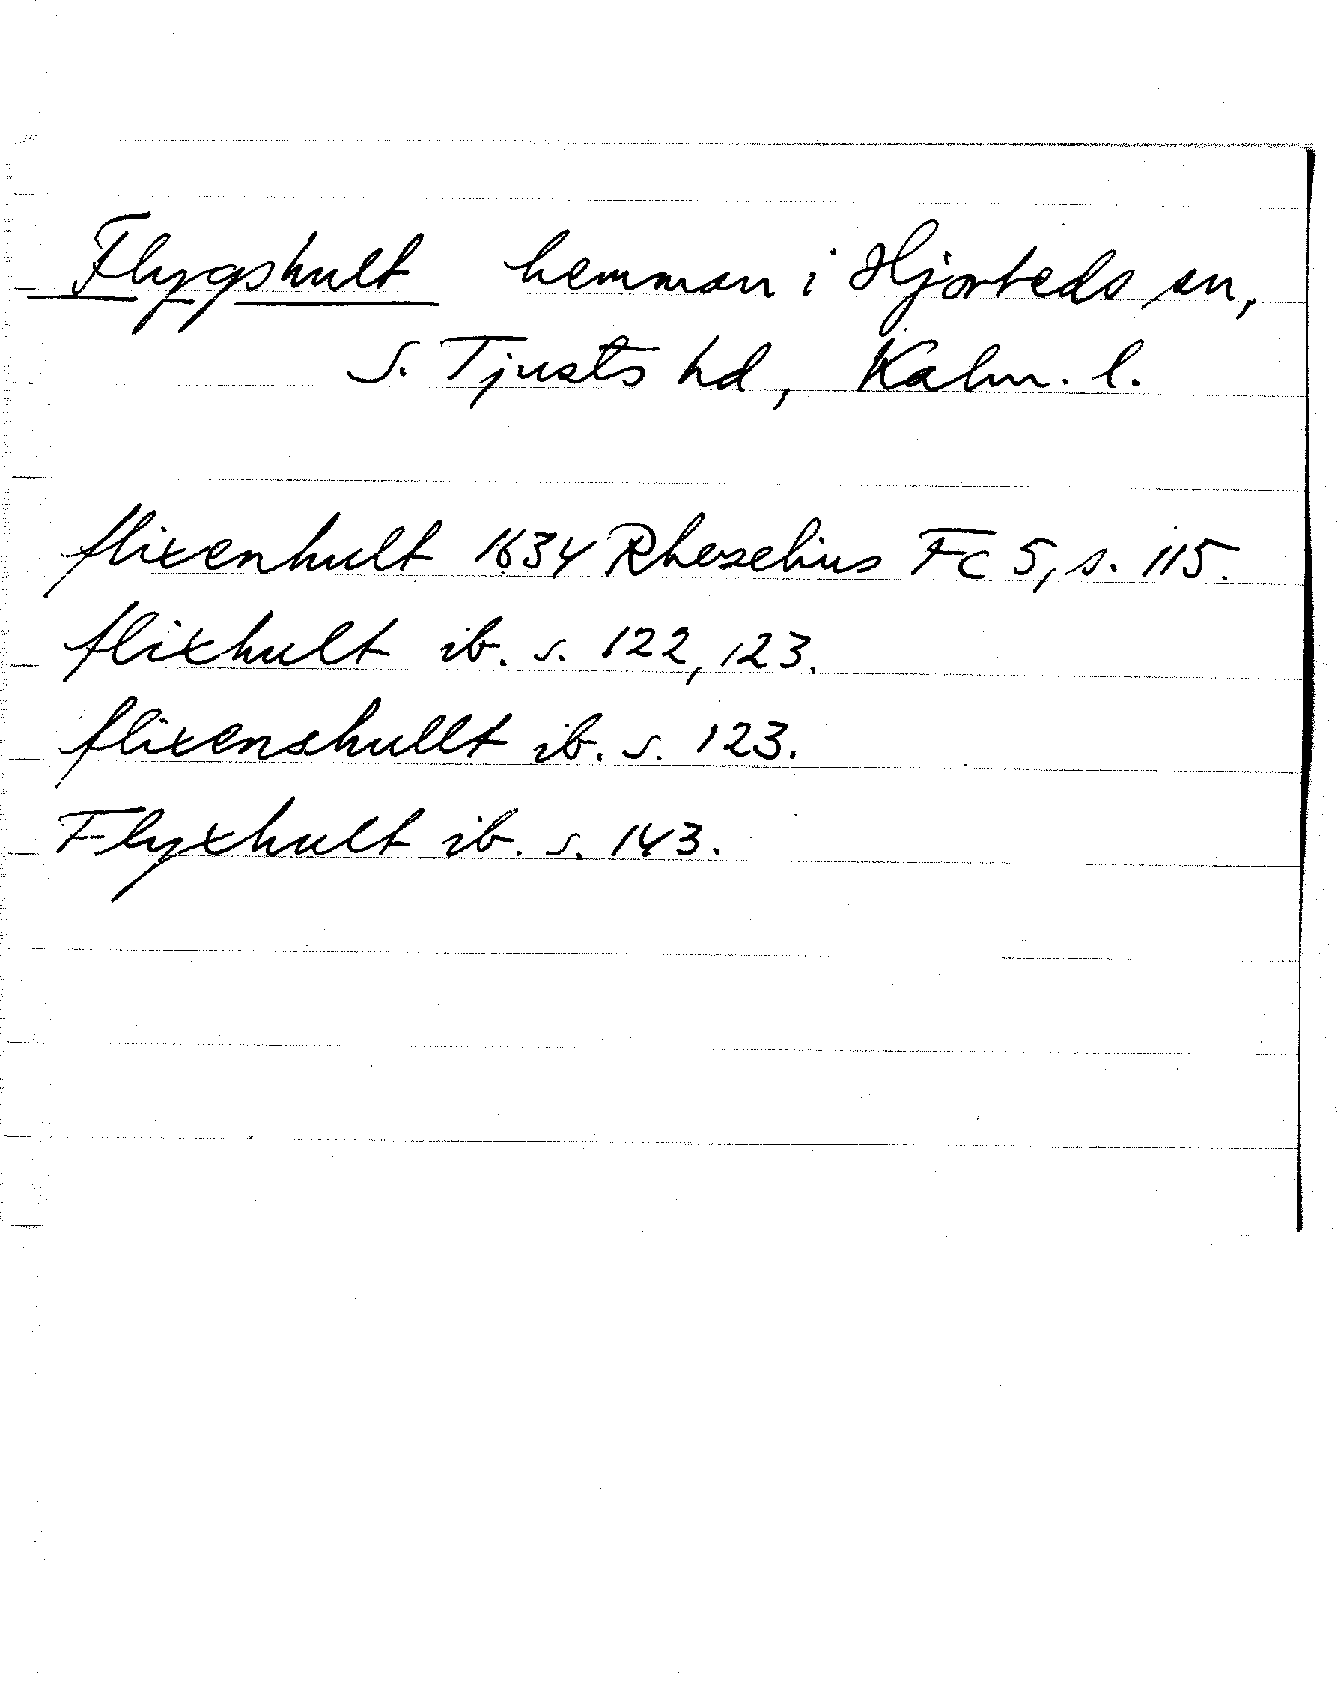 Flygshult hemman i Hjorteds sn,
S. Tjusts hd, Kalm. l.
flixenhult 1634 Rhezelius Fc 5, s. 115.
flixhult ib. s. 122, 123.
flixenshullt ib. s. 123.
Flyxhult ib. s. 143.